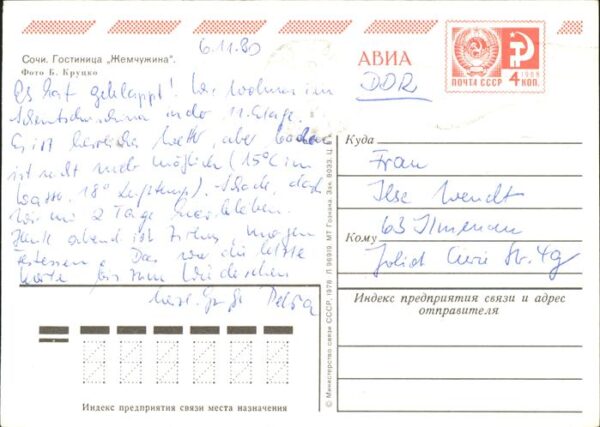 6.11.80
Сочи. Гостиница „Жемчужина".
Фото Б. Круцко
АВИА
DDR
ПОЧТА СССР
4 КОП.
Es hat geklappt! Wir wohnen im
in der 11. Etage.
Es ist herrliches Wetter, aber baden
ist nicht mehr möglich (15°C im
Wasser, 18° Lufttemp). Schade, daß
wir nur 2 Tage hierbleiben.
Heute abend ist Zirkus, morgen
Festessen. Das war die letzte
Karte bis zum Wiedersehen
Herzl. Grüße Petra
Куда
Frau
Ilse Wendt
63 Ilmenau
Кому
Joliot Curie Str. 49
Индекс предприятия связи и адрес
отправителя
Индекс предприятия связи места назначения
© Министерство связи СССР, 1978